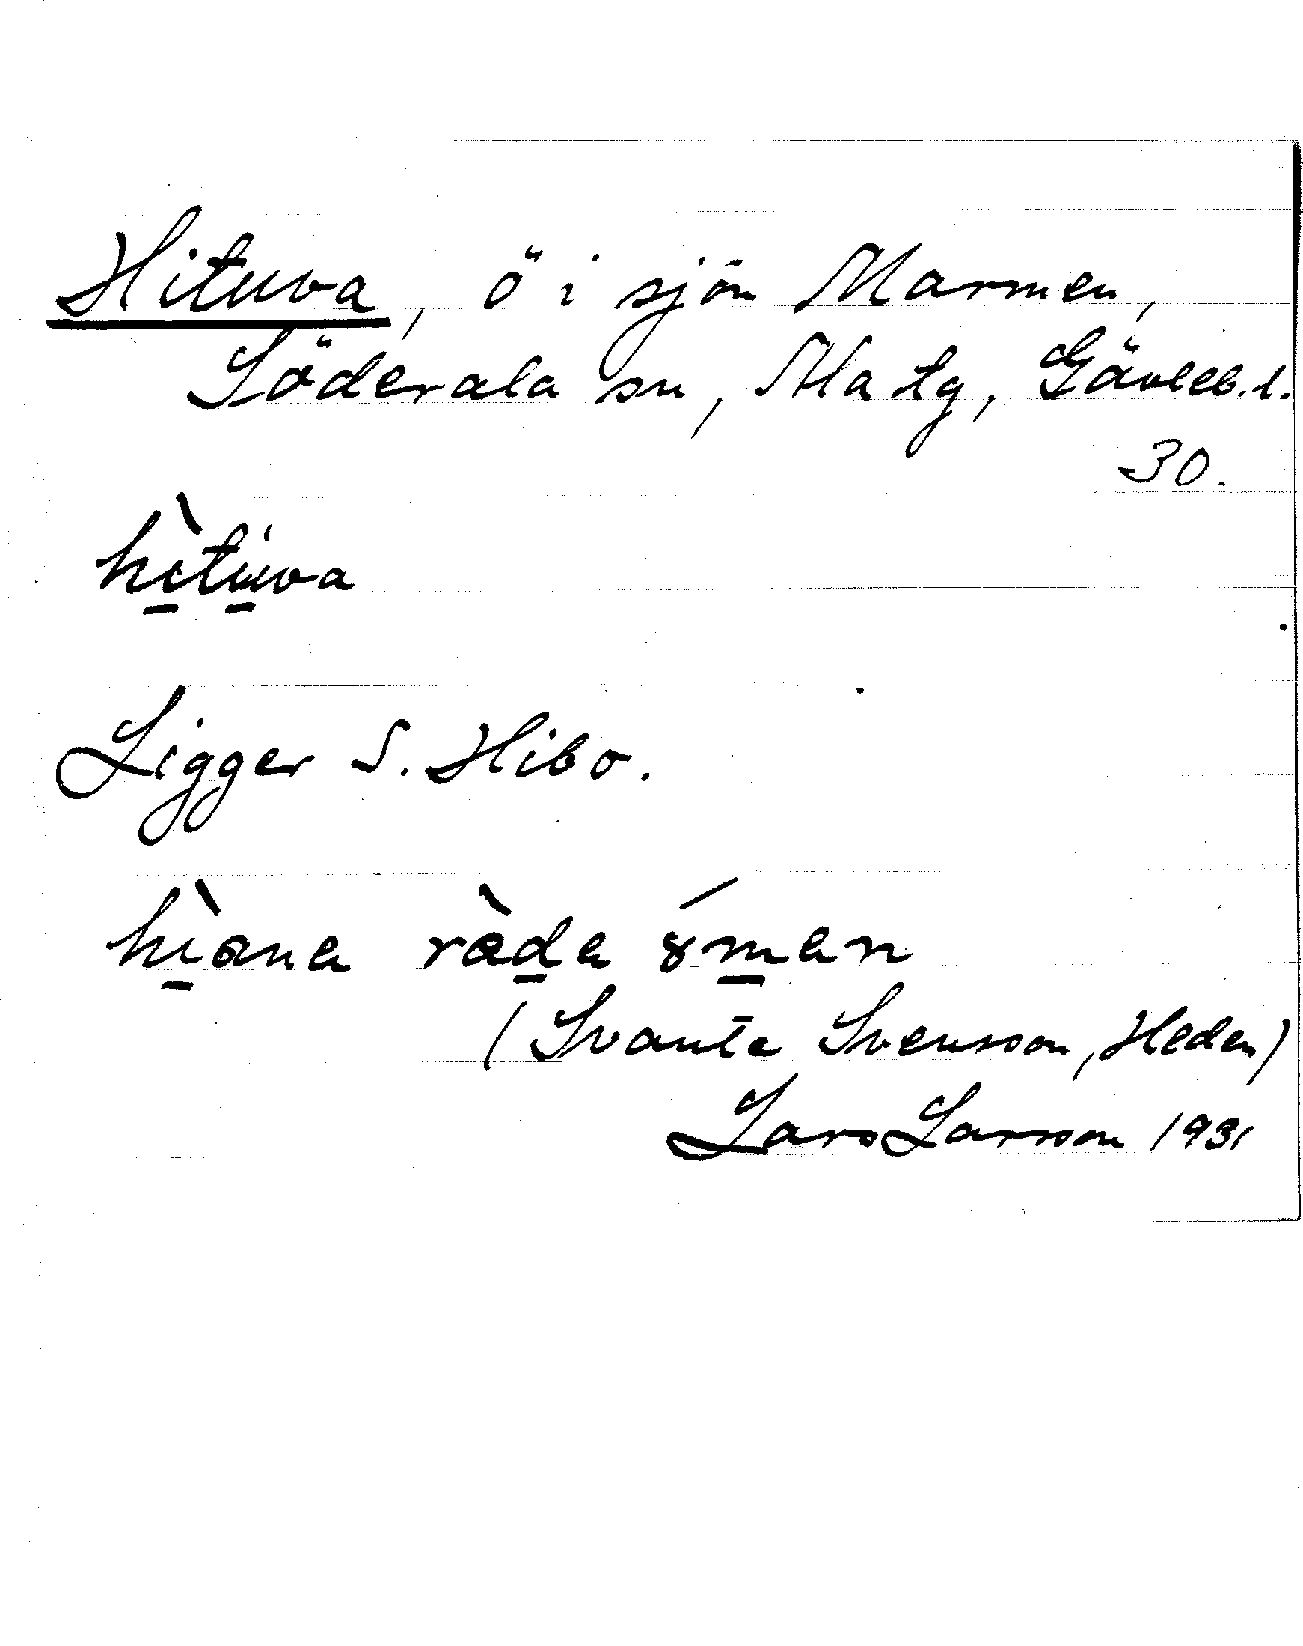 Hituva, ö i sjön Marmen,
Söderala sn, Ala tg, Gävleb. l.
30.
hìtúva
Ligger S. Hibo.
(Svante Svensson, Heden)
Lars Larsson 1931